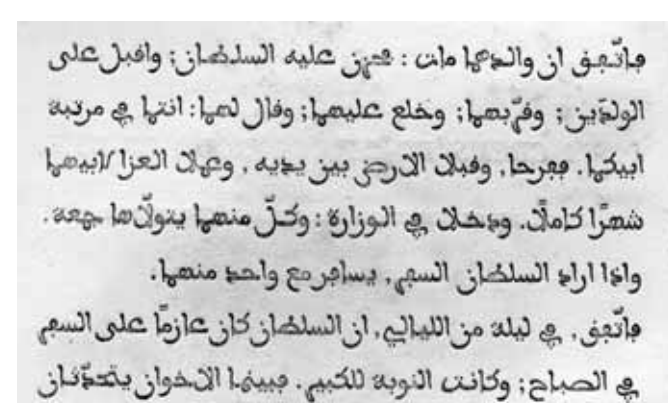 ڢاتّڢق ان والدهما مات : ڢحزن عليه السلطان ; واقبل على
الولدَين ; وقرّبهما ; وخلع عليهما ; وقال لهما : انتما ڢي مرتبة
ابيكما . ڢڢرحا . وقبلا الارض بين يديه . وعملا العزا لابيهما
شهرًا كاملًا . ودخلا ڢي الوزارة : وكلّ منهما يتولّاها جمعة .
واذا اراد السلطان السڢر . يساڢر مع واحد منهما .
ڢاتّڢق . ڢي ليلة من الليالي . ان السلطان كان عازمًا على السڢر
ڢي الصباح ; وكانت النوبة للكبير . ڢبينما الاخوان يتحدّثان